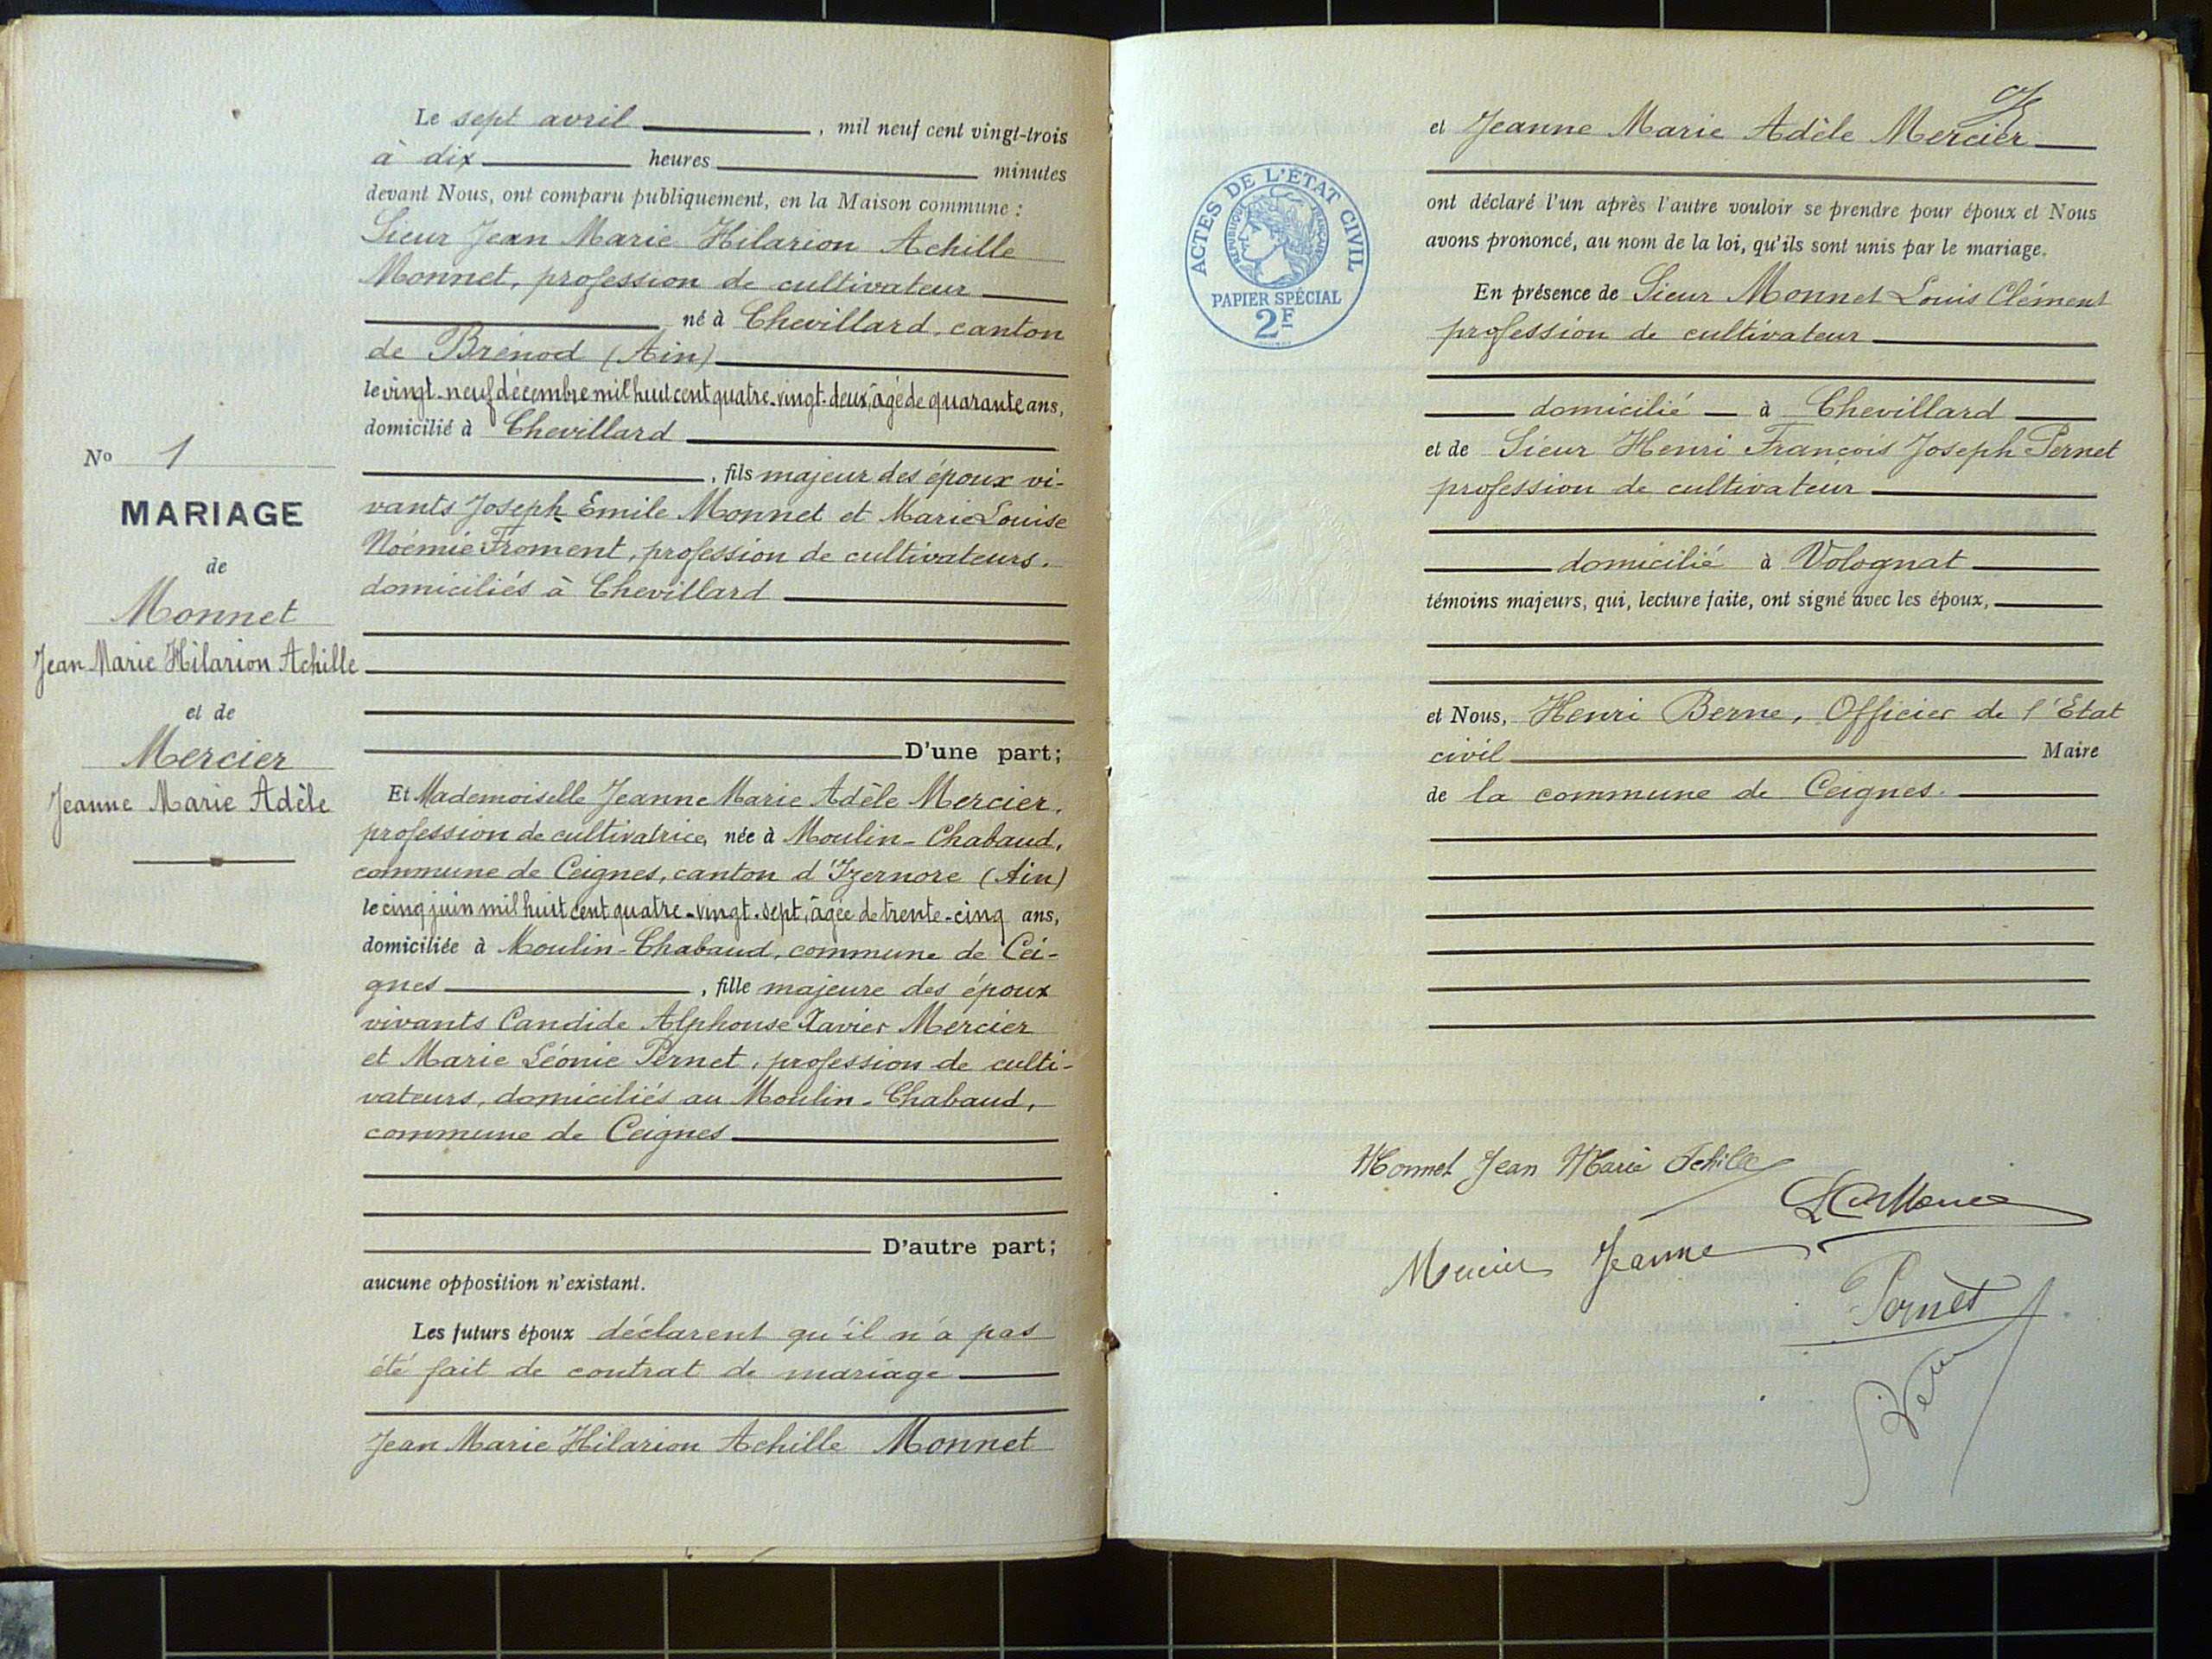 N° 1
MARIAGE
de
Monnet
Jean Marie Hilarion Achille
et de
Mercier
Jeanne Marie Adèle
Le sept avril, mil neuf cent vingt-trois
à dix heures minutes
devant Nous, ont comparu publiquement, en la Maison commune :
Sieur Jean Marie Hilarion Achille
Monnet, profession de cultivateur
né à Chevillard, canton
de Brénod (Ain)
le vingt-neuf décembre mil huit cent quatre-vingt-deux, âgé de quarante ans,
domicilié à Chevillard
, fils majeur des époux vi-
vants Joseph Emile Monnet et Marie Louise
Noémie Froment, profession de cultivateurs,
domiciliés à Chevillard
D'une part;
Et Mademoiselle Jeanne Marie Adèle Mercier,
profession de cultivatrice, née à Moulin-Chabaud,
commune de Ceignes, canton d'Izernore (Ain)
le cinq juin mil huit cent quatre-vingt-sept, âgée de trente-cinq ans,
domiciliée à Moulin-Chabaud, commune de Cei-
gnes, fille majeure des époux
vivants Candide Alphonse Xavier Mercier
et Marie Léonie Pernet, profession de culti-
vateurs, domiciliés au Moulin-Chabaud,
commune de Ceignes
D'autre part;
aucune opposition n'existant.
Les futurs époux déclarent qu'il n'a pas
été fait de contrat de mariage
Jean Marie Hilarion Achille Monnet
et Jeanne Marie Adèle Mercier
ACTES DE L'ÉTAT CIVIL
RÉPUBLIQUE FRANÇAISE
PAPIER SPÉCIAL
2F
ont déclaré l'un après l'autre vouloir se prendre pour époux et Nous
avons prononcé, au nom de la loi, qu'ils sont unis par le mariage.
En présence de Sieur Monnet Louis Clément
profession de cultivateur
domicilié à Chevillard
et de Sieur Henri François Joseph Pernet
profession de cultivateur
domicilié à Volognat
témoins majeurs, qui, lecture faite, ont signé avec les époux,
et Nous, Henri Berne, Officier de l'Etat
civil Maire
de la commune de Ceignes.
Monnet Jean Marie Achille
Mercier Jeanne
Pernet
Berne